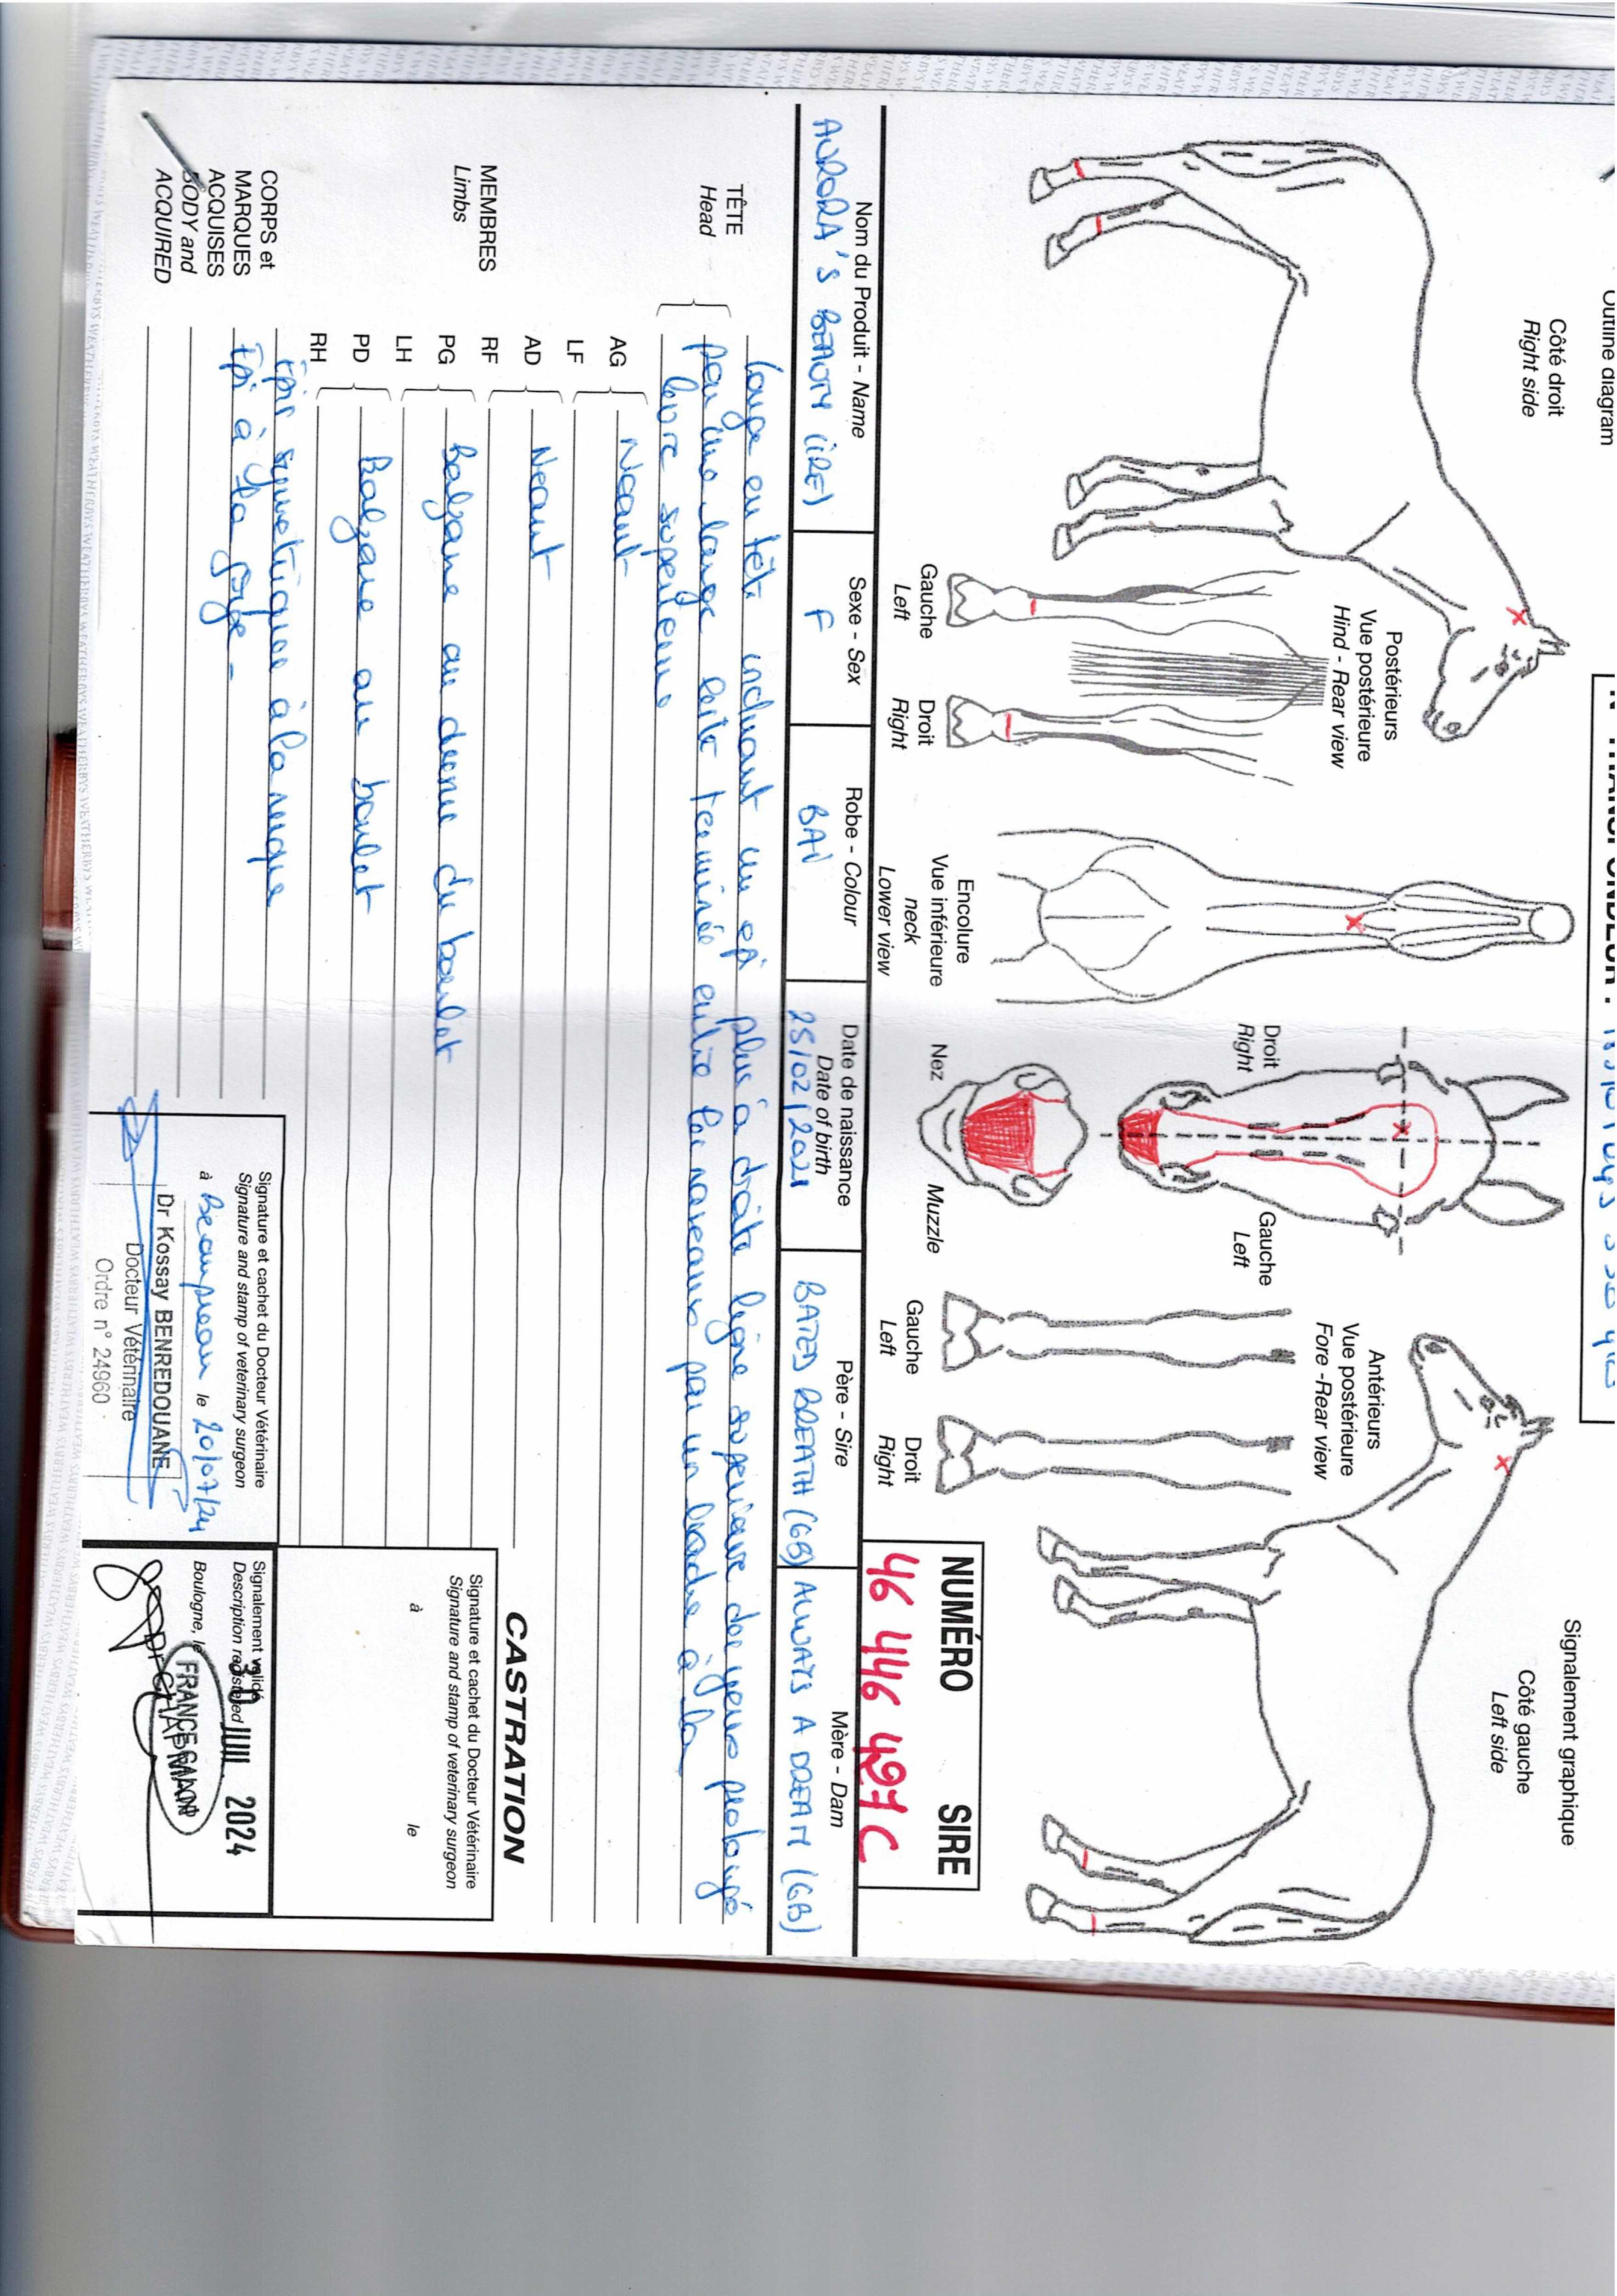 Outline diagram
Signalement graphique
Côté droit
Right side
Postérieurs
Vue postérieure
Hind - Rear view
Gauche
Left
Droit
Right
Encolure
Vue inférieure
neck
Lower view
Droit
Right
Gauche
Left
Nez
Muzzle
Antérieurs
Vue postérieure
Fore - Rear view
Gauche
Left
Droit
Right
Côté gauche
Left side
NUMÉRO SIRE
46 446 497 C
Nom du Produit - Name
Sexe - Sex
Robe - Colour
Date de naissance
Date of birth
Père - Sire
Mère - Dam
AURORA'S BEAUTY (IRE)
F
BAI
25/02/2021
BATED BREATH (GB)
ALWAYS A DREAM (GB)
TÊTE
Head
Longe en tête incluant un épi plus à droite ligne supérieure des yeux prolongé
par une large liste terminée entre les naseaux par un ladre à la
lèvre supérieure
MEMBRES
Limbs
AG
LF
Neant
AD
RF
Neant
PG
LH
Balzane au dessus du boulet
PD
RH
Balzane au boulet
CORPS et
MARQUES
ACQUISES
BODY and
ACQUIRED
Epis symetriques à la nuque
Epi à la gorge -
CASTRATION
Signature et cachet du Docteur Vétérinaire
Signature and stamp of veterinary surgeon
à le
Signature et cachet du Docteur Vétérinaire
Signature and stamp of veterinary surgeon
à Beaupreau le 20/07/24
Dr Kossay BENREDOUANE
Docteur Vétérinaire
Ordre n° 24960
Signalement validé
Description registered
JUIL 2024
Boulogne, le
FRANCE GALOP